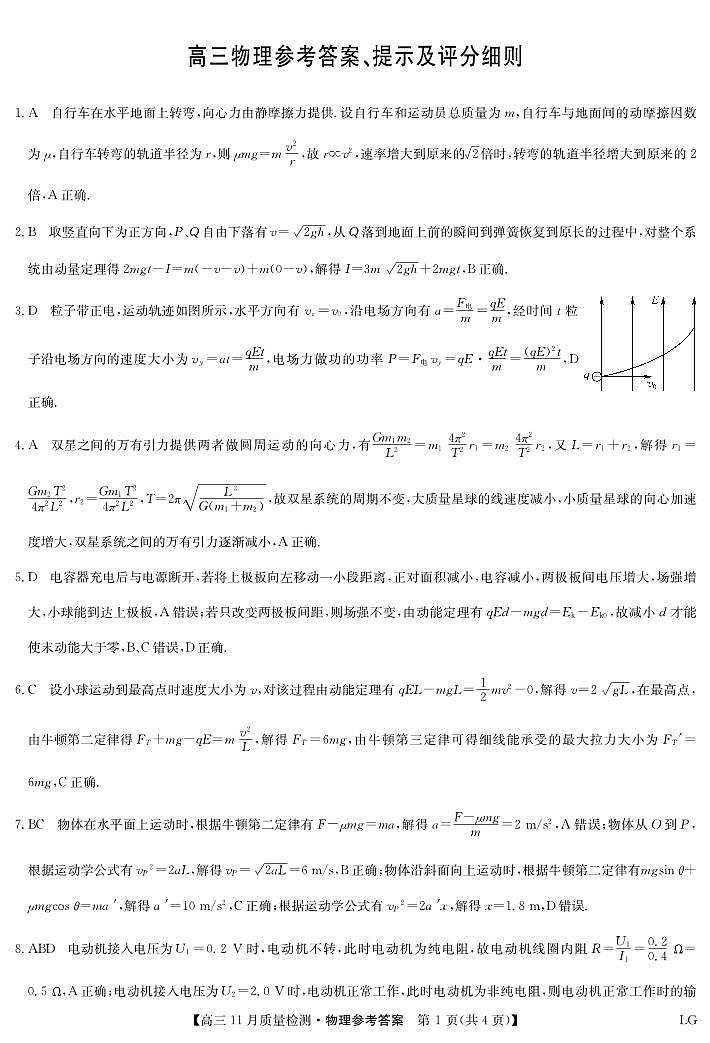 高三物理参考答案、提示及评分细则
1. A 自行车在水平地面上转弯,向心力由静摩擦力提供.设自行车和运动员总质量为 m,自行车与地面间的动摩擦因数
为 μ,自行车转弯的轨道半径为 r,则 μmg=m v²/r,故 r∝v²,速率增大到原来的√2倍时,转弯的轨道半径增大到原来的 2
倍,A 正确.
2. B 取竖直向下为正方向,P、Q 自由下落有 v=√(2gh),从 Q 落到地面上前的瞬间到弹簧恢复到原长的过程中,对整个系
统由动量定理得 2mgt−I=m(−v−v)+m(0−v),解得 I=3m√(2gh)+2mgt,B 正确.
3. D 粒子带正电,运动轨迹如图所示,水平方向有 vₓ=v₀,沿电场方向有 a=F电/m=qE/m,经时间 t 粒
子沿电场方向的速度大小为 v_y=at=qEt/m,电场力做功的功率 P=F电 v_y=qE·qEt/m=(qE)²t/m,D
正确.
E
q
v₀
4. A 双星之间的万有引力提供两者做圆周运动的向心力,有Gm₁m₂/L²=m₁ 4π²/T² r₁=m₂ 4π²/T² r₂,又 L=r₁+r₂,解得 r₁=
Gm₂T²/4π²L²,r₂=Gm₁T²/4π²L²,T=2π√(L³/G(m₁+m₂)),故双星系统的周期不变,大质量星球的线速度减小,小质量星球的向心加速
度增大,双星系统之间的万有引力逐渐减小,A 正确.
5. D 电容器充电后与电源断开,若将上极板向左移动一小段距离,正对面积减小,电容减小,两极板间电压增大,场强增
大,小球能到达上极板,A 错误;若只改变两极板间距,则场强不变,由动能定理有 qEd−mgd=Eₖ−Eₖ₀,故减小 d 才能
使末动能大于零,B、C 错误,D 正确.
6. C 设小球运动到最高点时速度大小为 v,对该过程由动能定理有 qEL−mgL=1/2 mv²−0,解得 v=2√(gL),在最高点,
由牛顿第二定律得 F_T+mg−qE=m v²/L,解得 F_T=6mg,由牛顿第三定律可得细线能承受的最大拉力大小为 F_T′=
6mg,C 正确.
7. BC 物体在水平面上运动时,根据牛顿第二定律有 F−μmg=ma,解得 a=(F−μmg)/m=2 m/s²,A 错误;物体从 O 到 P,
根据运动学公式有 v_P²=2aL,解得 v_P=√(2aL)=6 m/s,B 正确;物体沿斜面向上运动时,根据牛顿第二定律有mgsin θ+
μmgcos θ=ma′,解得 a′=10 m/s²,C 正确;根据运动学公式有 v_P²=2a′x,解得 x=1.8 m,D 错误.
8. ABD 电动机接入电压为 U₁=0.2 V 时,电动机不转,此时电动机为纯电阻,故电动机线圈内阻 R=U₁/I₁=0.2/0.4 Ω=
0.5 Ω,A 正确;电动机接入电压为 U₂=2.0 V 时,电动机正常工作,此时电动机为非纯电阻,则电动机正常工作时的输
【高三 11 月质量检测·物理参考答案 第 1 页(共 4 页)】 LG